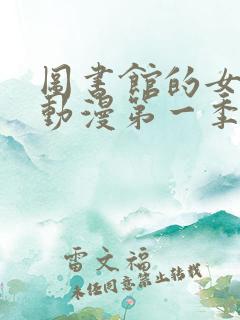 圖書館的女
動漫第一季
雷文福
未任同意禁止轉載